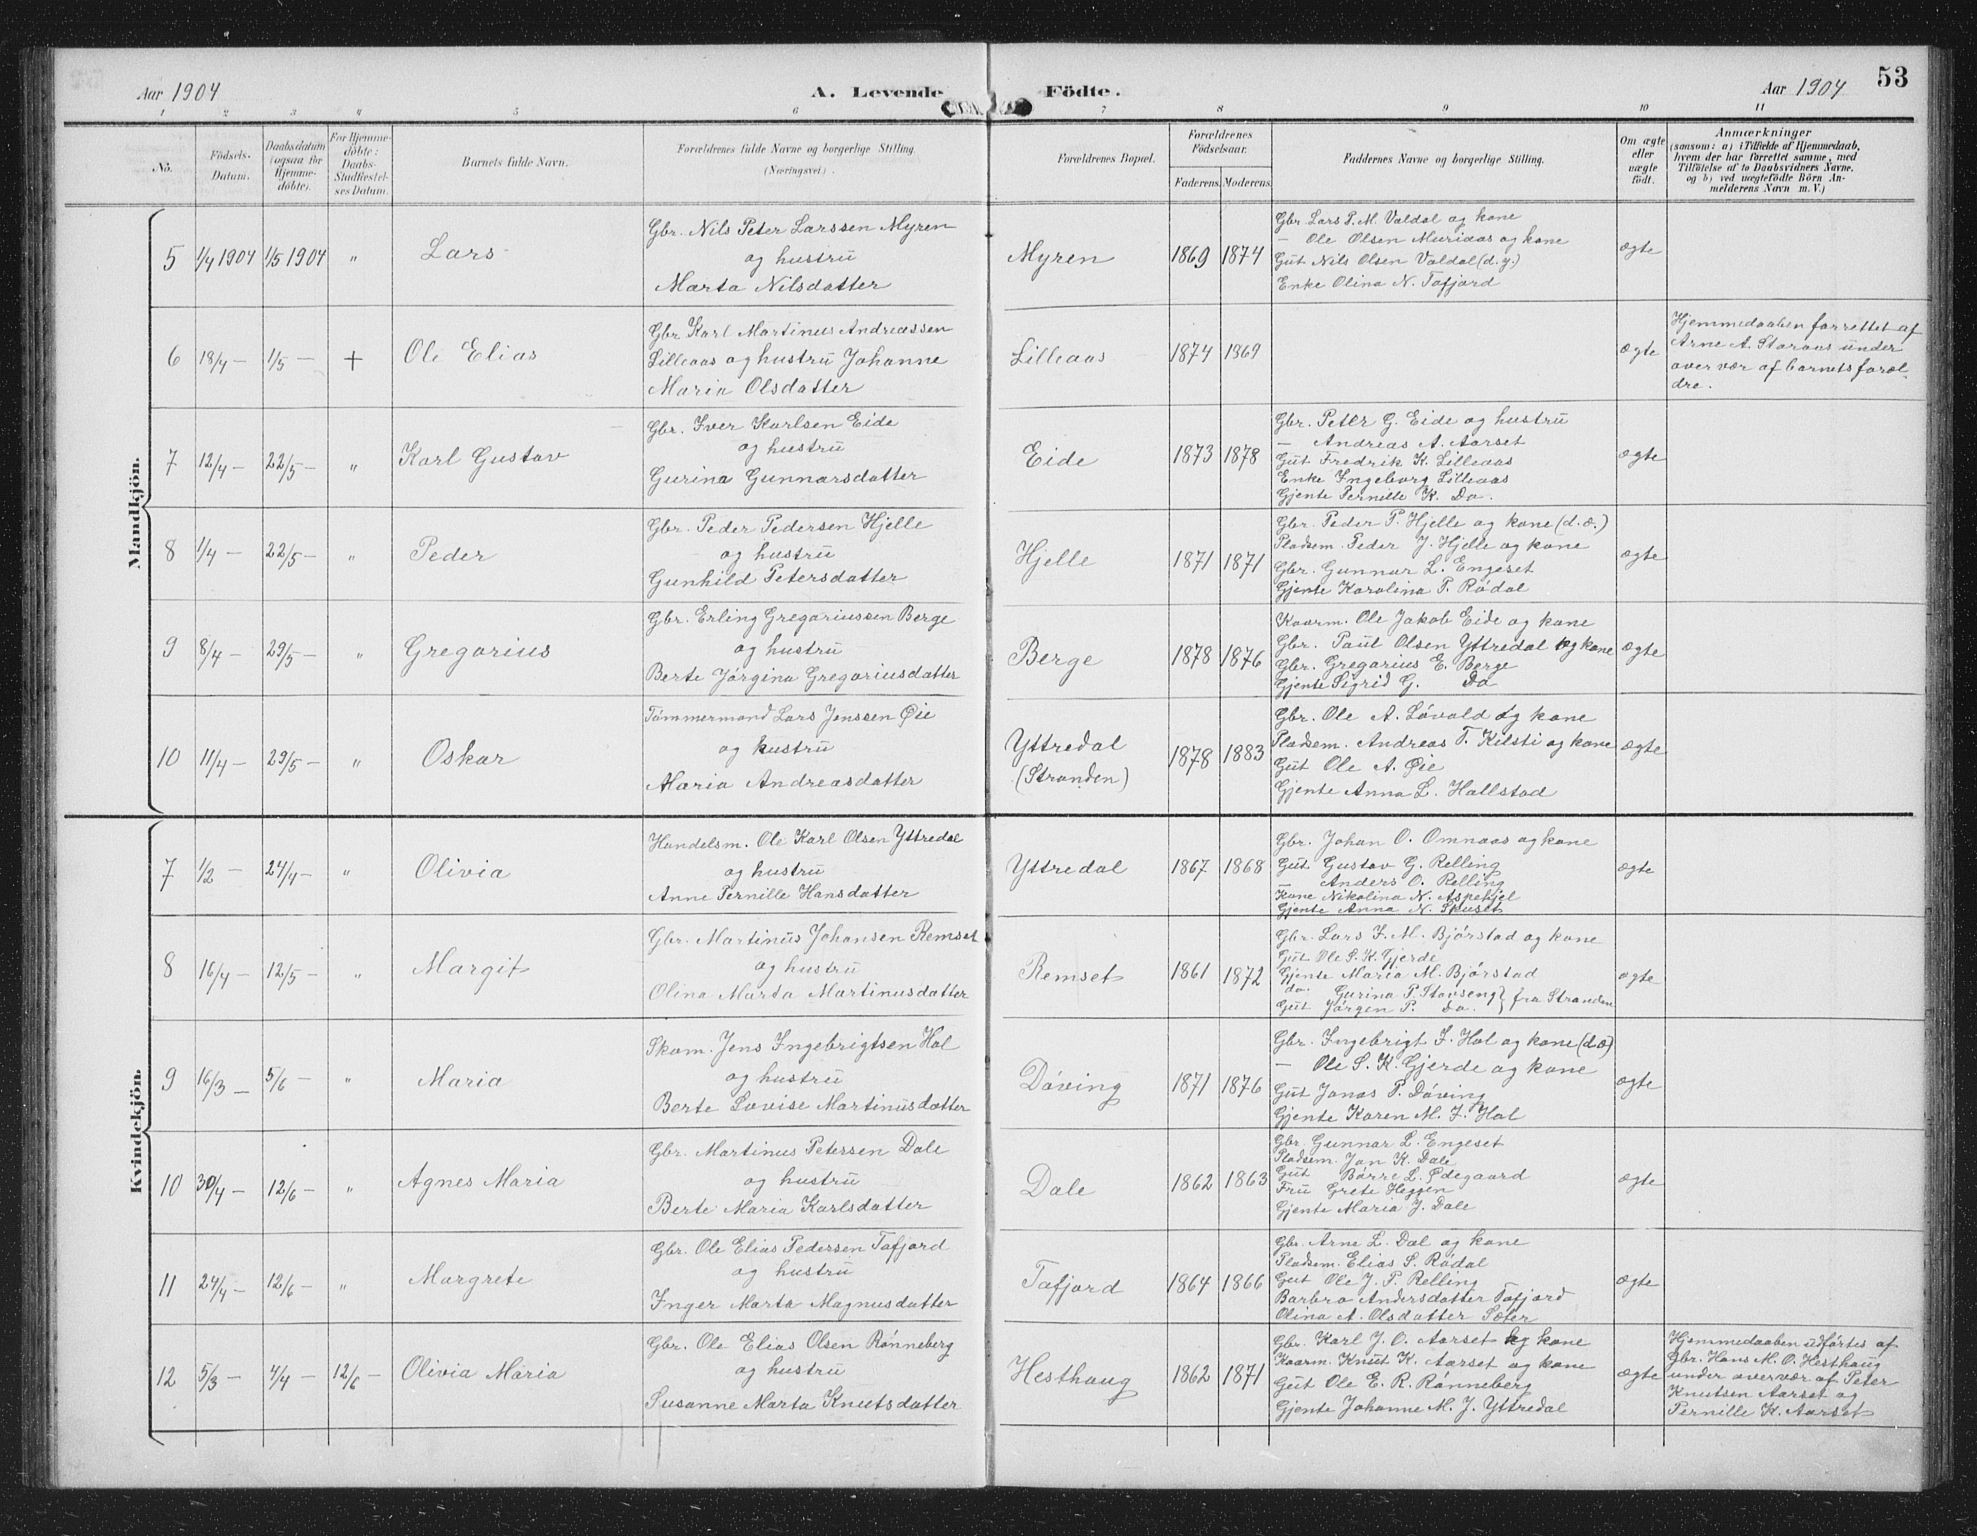 Aar 1904
A. Levende
Födte.
Aar 1904
53
1 2 3 4 5 6 7 8 9 10 11
No.
Födsels-
Datum.
Daabsdatum
(ogsaa for
Hjemme-
döbte).
For Hjemme-
döbte:
Daabs-
Stadfæstel-
ses Datum.
Barnets fulde Navn.
Forældrenes fulde Navne og borgerlige Stilling.
(Næringsvei.)
Forældrenes Bopæl.
Forældrenes
Födselsaar.
Faderens. Moderens.
Faddernes Navne og borgerlige Stilling.
Om ægte
eller
uægte
födt.
Anmærkninger
(saasom: a) i Tilfælde af Hjemmedaab,
hvem der har forrettet samme, med
Tilföielse af to Daabsvidners Navne,
og b) ved uægtefödte Börn An-
melderens Navn m. V.)
Mandkjön.
5 1/4 1904 1/5 1904 " Lars
Gbr. Nils Peter Larssen Myren
og hustru
Marta Nilsdatter
Myren 1869 1874
Gbr. Lars P. M. Valdal og kone
— Ole Olsen Muriaas og kone
Gut Nils Olsen Valdal (d.y.)
Enke Olina N. Tafjord
ægte
6 18/4 — 1/5 — + Ole Elias
Gbr Karl Martinus Andreassen
Lilleaas og hustru Johanne
Maria Olsdatter
Lilleaas 1874 1869
ægte
Hjemmedaaben forrettet af
Arne A. Storaas under
overvær af barnets foræl-
dre.
7 12/4 — 22/5 — " Karl Gustav
Gbr. Iver Karlsen Eide
og hustru
Gurina Gunnarsdatter
Eide 1873 1878
Gbr. Peter G. Eide og hustru
— Andreas A. Aarset
Gut Fredrik K. Lilleaas
Enke Ingeborg Lilleaas
Gjente Pernille K. Do.
ægte
8 1/4 — 22/5 — " Peder
Gbr. Peder Pedersen Hjelle
og hustru
Gunhild Petersdatter
Hjelle 1871 1871
Gbr. Peder P. Hjelle og kone (d.æ.)
Pladsem. Peder J. Hjelle og kone
Gbr. Gunnar L. Engeset
Gjente Karolina P. Rødal
ægte
9 8/4 — 29/5 — " Gregorius
Gbr. Erling Gregoriussen Berge
og hustru
Berte Jørgina Gregoriusdatter
Berge 1878 1876
Kaarm. Ole Jakob Eide og kone
Gbr. Paul Olsen Yttredal og kone
Gbr. Gregorius E. Berge
Gjente Sigrid G. Do
ægte
10 11/4 — 29/5 — " Oskar
Tømmermand Lars Jenssen Øie
og hustru
Maria Andreasdatter
Yttredal
(Stranden)
1878 1883
Gbr. Ole A. Løvold og kone
Pladsem. Andreas T. Kilsti og kone
Gut Ole A. Øie
Gjente Anna L. Hallstad
ægte
Kvindekjön.
7 1/2 — 24/4 — " Olivia
Handelsm. Ole Karl Olsen Yttredal
og hustru
Anne Pernille Hansdatter
Yttredal 1867 1868
Gbr. Johan O. Omnaas og kone
Gut Gustav G. Relling
— Anders O. Relling
Kone Nikolina N. Aspehjel
Gjente Anna N. Skuset
ægte
8 16/4 — 12/5 — " Margit
Gbr. Martinus Johansen Remset
og hustru
Olina Marta Martinusdatter
Remset 1861 1872
Gbr. Lars I. M. Bjørstad og kone
Gut Ole S. K. Gjerde
Gjente Maria M. Bjørstad
do. Gurina P. Stavseng } fra Stranden
Gut Jørgen P. Do.
ægte
9 16/3 — 5/6 — " Maria
Skom. Jens Ingebrigtsen Hol
og hustru
Berte Lovise Martinusdatter
Døving 1871 1876
Gbr. Ingebrigt I. Hol og kone (d.æ)
— Ole S. K. Gjerde og kone
Gut Jonas P. Døving
Gjente Karen M. I. Hol
ægte
10 30/4 — 12/6 — " Agnes Maria
Gbr. Martinus Peterssen Dale
og hustru
Berte Maria Karlsdatter
Dale 1862 1863
Gbr. Gunnar L. Engeset
Pladsem. Jan K. Dale
Gut Børre L. Ødegaard
Fru Grete Heggen
Gjente Maria J. Dale
ægte
11 24/4 — 12/6 — " Margrete
Gbr. Ole Elias Pedersen Tafjord
og hustru
Inger Marta Magnusdatter
Tafjord 1864 1866
Gbr. Arne L. Dal og kone
Pladsem. Elias S. Rødal
Gut Ole J. P. Relling
Barbro Andersdatter Tafjord
Olina A. Olsdatter Sæter
ægte
12 5/3 — 4/4 — 12/6 — Olivia Maria
Gbr. Ole Elias Olsen Rønneberg
og hustru
Susanne Marta Knutsdatter
Hesthaug 1862 1871
Gbr. Karl J. O. Aarset og kone
Kaarm. Knut K. Aarset og kone
Gut Ole E. R. Rønneberg
Gjente Johanne M. J. Yttredal
ægte
Hjemmedaaben udførtes af
Gbr. Hans M. O. Hesthaug
under overvær af Peter
Knutsen Aarset og
Pernille K. Aarset